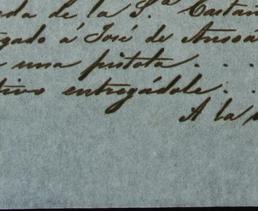 da de la S.ª Castañ
gado á José de Ansoá
una pistola . . .
tivo entregádole . .
A la